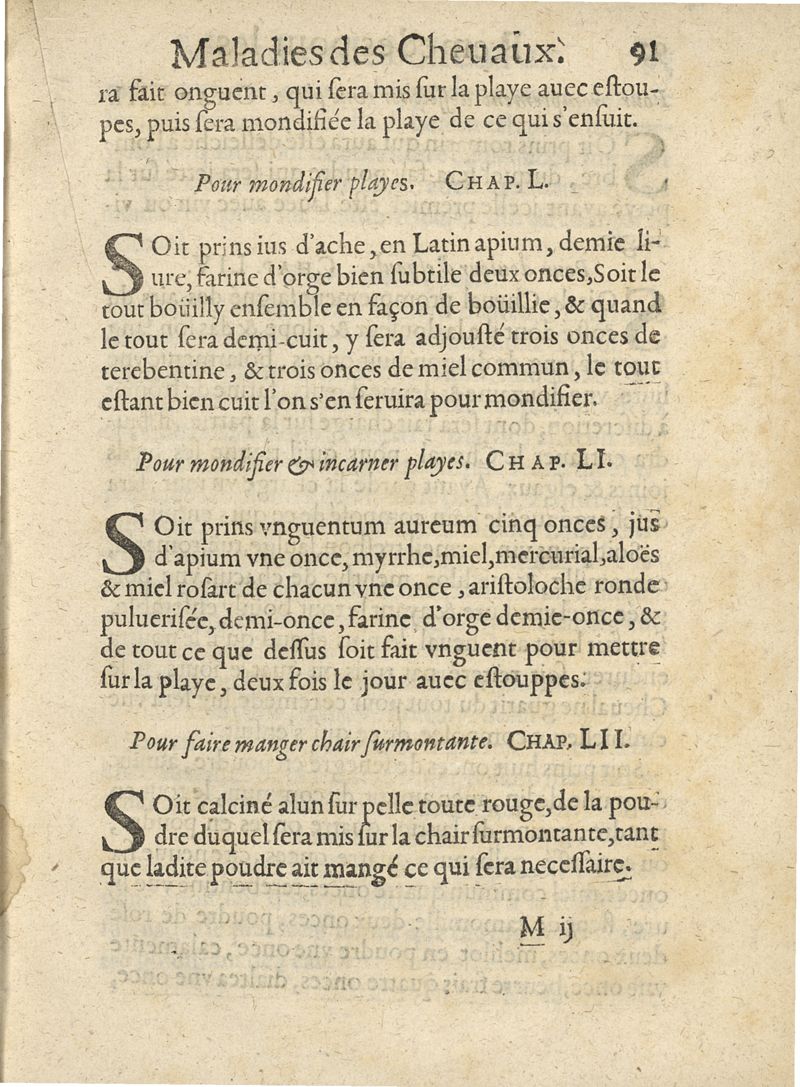 Maladies des Cheuaux. 91
ra fait onguent, qui ſera mis ſur la playe auec eſtou-
pes, puis ſera mondifiée la playe de ce qui s'enſuit.
Pour mondifier playes. CHAP. L.
SOit prins ius d'ache, en Latin apium, demie li-
ure, farine d'orge bien ſubtile deux onces, Soit le
tout boüilly enſemble en façon de boüillie, & quand
le tout ſera demi-cuit, y ſera adjouſté trois onces de
terebentine, & trois onces de miel commun, le tout
eſtant bien cuit l'on s'en ſeruira pour mondifier.
Pour mondifier & incarner playes. CHAP. LI.
SOit prins vnguentum aureum cinq onces, jus
d'apium vne once, myrrhe, miel, mercurial, aloës
& miel roſart de chacun vne once, ariſtoloche ronde
pulueriſée, demi-once, farine d'orge demie-once, &
de tout ce que deſſus ſoit fait vnguent pour mettre
ſur la playe, deux fois le jour auec eſtouppes.
Pour faire manger chair ſurmontante. CHAP. LII.
SOit calciné alun ſur pelle toute rouge, de la pou-
dre duquel ſera mis ſur la chair ſurmontante, tant
que ladite poudre ait mangé ce qui ſera neceſſaire.
M ij